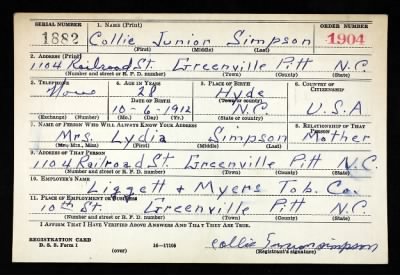 SERIAL NUMBER 1. NAME (Print) ORDER NUMBER
1882 Collie Junior Simpson 1904
(First) (Middle) (Last)
2. ADDRESS (Print)
1104 Railroad St. Greenville Pitt N.C.
(Number and street or R. F. D. number) (Town) (County) (State)
3. TELEPHONE 4. AGE IN YEARS 5. PLACE OF BIRTH 6. COUNTRY OF CITIZENSHIP
None 28 Hyde
DATE OF BIRTH (Town or county)
10-6-1912 N.C. U.S.A
(Exchange) (Number) (Mo.) (Day) (Yr.) (State or country)
7. NAME OF PERSON WHO WILL ALWAYS KNOW YOUR ADDRESS 8. RELATIONSHIP OF THAT PERSON
Mrs. Lydia Simpson Mother
(Mr., Mrs., Miss) (First) (Middle) (Last)
9. ADDRESS OF THAT PERSON
1104 Railroad St. Greenville Pitt N.C.
(Number and street or R. F. D. number) (Town) (County) (State)
10. EMPLOYER'S NAME
Liggett & Myers Tob. Co.
11. PLACE OF EMPLOYMENT OR BUSINESS
10th St. Greenville Pitt N.C.
(Number and street or R. F. D. number) (Town) (County) (State)
I AFFIRM THAT I HAVE VERIFIED ABOVE ANSWERS AND THAT THEY ARE TRUE.
REGISTRATION CARD
D. S. S. Form 1 (over) 16-17105 Collie Junior Simpson
(Registrant's signature)